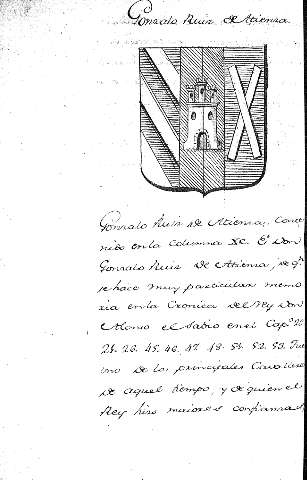 Gonzalo Ruiz de Atienza
Gonzalo Ruiz de Atienza, Conte
nido en la columna XC. Es Don
Gonzalo Ruiz De Atienza, de qn
se hace muy particular memo
ria en la Cronica del Rey Don
Alonso el Sabio en el Capo. 20
21. 23. 45. 46. 47. 48. 51. 52. 53. Fue
uno de los principales Cavalleros
de aquel tiempo, y de quien el
Rey hizo maiores confianzas,